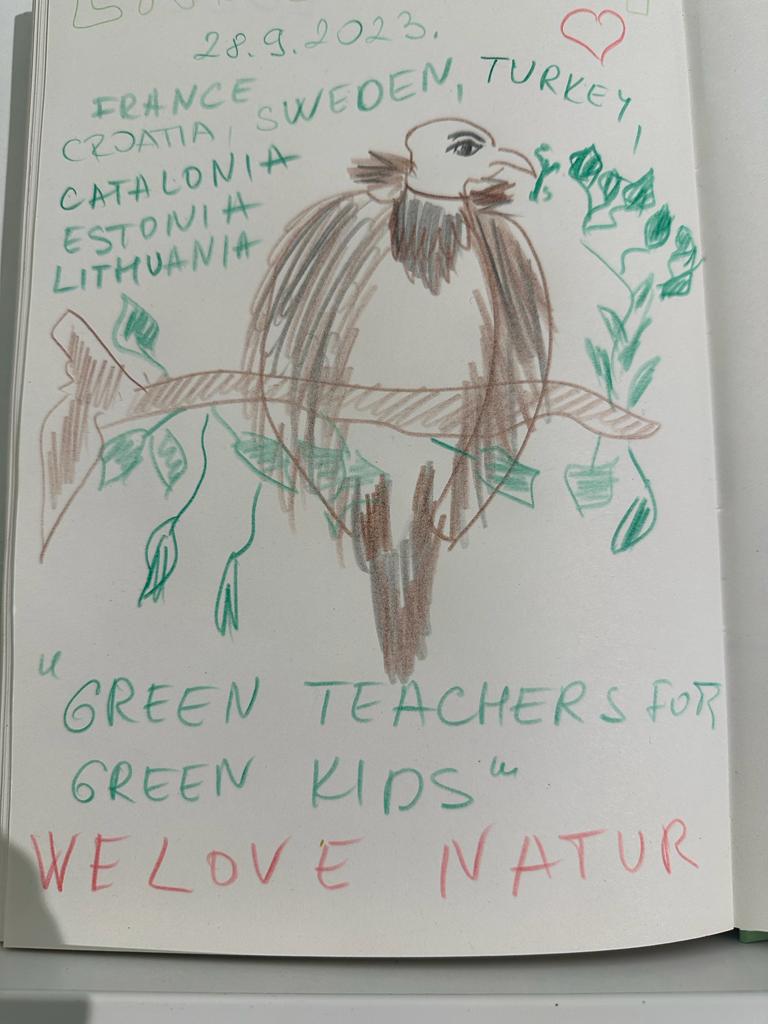 28.9.2023.
FRANCE SWEDEN, TURKEY,
CROATIA,
CATALONIA
ESTONIA
LITHUANIA
"GREEN TEACHERS FOR
GREEN KIDS"
WE LOVE NATUR